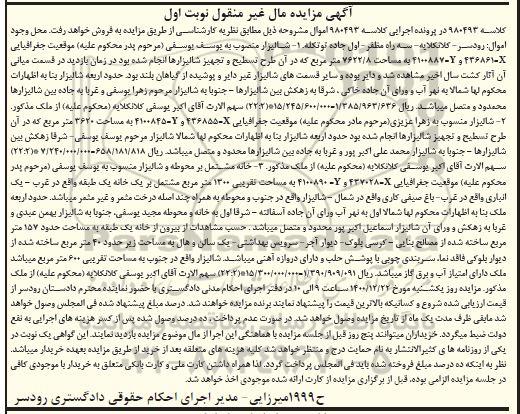 آگهی مزایده مال غیر منقول نوبت اول
کلاسه ۹۸۰۴۹۳ در پرونده اجرایی کلاسه ۹۸۰۴۹۳ اموال مشروحه ذیل مطابق نظریه کارشناسی از طریق مزایده به فروش خواهد رفت. محل وجود
اموال: رودسر- کلانکلایه- سه راه مظفر- اول جاده توتکله. ۱- شالیزار منصوب به یوسف یوسفی (مرحوم پدر محکوم علیه) موقعیت جغرافیایی
۴۳۶۸۶۱=X و ۴۱۰۰۸۸۷=Y به مساحت ۷۶۲۲/۸ متر مربع که در آن طرح تسطیح و تجهیز شالیزارها انجام شده بود در زمان بازدید در قسمت میانی
آن آثار کشت سال اخیر مشاهده شد و دایر بوده و سایر قسمت های شالیزار غیر دایر و پوشیده از گیاهان بلند بود. حدود اربعه شالیزار بنا به اظهارات
محکوم لها شمالا به نهر آب و ورای آن جاده خاکی، شرقا به زهکش بین شالیزارها - جنوبا به شالیزار مرحوم زهرا یوسفی و غربا به جاده بین شالیزارها
محدود و متصل میباشد. ریال ۱/۳۸۵/۹۶۳/۶۳۶=۱۵/۲۴۵/۶۰۰/۰۰۰(۲:۲۲) سهم الارث آقای اکبر یوسفی کلانکلایه (محکوم علیه) از ملک مذکور.
۲- شالیزار منسوب به زهرا عزیزی(مرحوم مادر محکوم علیه) موقعیت جغرافیایی ۴۳۶۸۵۵=X و ۴۱۰۰۸۴۵=Y به مساحت ۳۶۲۰ متر مربع که در آن
طرح تسطیح و تجهیز شالیزارها انجام شده بود حدود اربعه شالیزار بنا به اظهارات محکوم لها شمالا شالیزار مرحوم یوسف یوسفی- شرقا زهکش بین
شالیزارها - جنوبا به شالیزار محمد علی اکبر پور و غربا به جاده بین شالیزارها محدود و متصل میباشد. ریال ۶۵۸/۱۸۱/۸۱۸=۷/۲۴۰/۰۰۰/۰۰۰(۲:۲۲)
سهم الارث آقای اکبر یوسفی کلانکلایه (محکوم علیه) از ملک مذکور. ۳- خانه مشتمل بر محوطه و شالیزار منسوب به یوسف یوسفی (مرحوم پدر
محکوم علیه) موقعیت جغرافیایی ۴۳۷۰۲۸=X و ۴۱۰۰۸۹۰=Y به مساحت تقریبی ۱۳۰۰ متر مربع مشتمل بر یک خانه یک طبقه واقع در غرب - یک
انباری واقع در غرب- باغ صیفی کاری واقع در شمال - شالیزار واقع در جنوب و محوطه به همراه چند اصله درخت مثمر و غیر مثمر میباشد. حدود اربعه
ملک بنا به اظهارات محکوم لها شمالا اول به نهر آب ورای آن جاده آسفالته - شرقا اول به خانه و محوطه مجید یوسفی، جنوبا به شالیزار بهمن عیدی و
غربا به زهکش و ورای آن شالیزار اسماعیل اکبر پور محدود و متصل میباشد. حسب مشاهدات از بیرون از خانه یک طبقه به مساحت حدود ۱۵۷ متر
مربع ساخته شده از مصالح بنایی - کرسی بلوک- دیوار آجر- سرویس بهداشتی- یک سالن و هال به مساحت زیر حدود ۴۰ متر مربع ساخته شده از
دیوار بلوکی فاقد نما، سربندی چوبی با پوشش حلب و دارای دروازه آهنی میباشد. شالیزار واقع در جنوب به مساحت تقریبی ۶۰۰ متر مربع میباشد
ملک دارای امتیاز آب و برق گاز میباشد. ریال ۱/۳۹۰/۹۰۹/۰۹۱=۱۵/۳۰۰/۰۰۰/۰۰۰(۲:۲۲) سهم الارث آقای اکبر یوسفی کلانکلایه (محکوم علیه) از ملک
مذکور. مزایده روز یکشنبه مورخ ۱۴۰۰/۱۲/۲۲ ساعت ۹ الی ۱۰ در دفتر اجرای احکام مدنی دادگستری با حضور نماینده محترم دادستان رودسر از
قیمت ارزیابی شده شروع و کسانیکه بالاترین قیمت را پیشنهاد نمایند برنده مزایده خواهند شد. ده درصد مبلغ پیشنهاد شده فی المجلس وصول خواهد
شد مابقی ظرف مدت یک ماه از تاریخ مزایده وصول خواهد شد. در صورت عدم پرداخت، ده درصد وصول شده پس از کسر هزینه های اجرایی به نفع
دولت ضبط میگردد. خریداران میتوانند پنج روز قبل از جلسه مزایده با هماهنگی این اجرا از مال موضوع مزایده بازدید نمایند. این گواهی یک نوبت در
یکی از روزنامه ها ی کثیرالانتشار به نام حمایت درج و منتظر خواهد شد. کلیه هزینه های متعلقه بعد از خرید از طریق مزایده بعهده خریدار میباشد.
نظر به اینکه ده درصد مبلغ فروخته شده باید فی المجلس پرداخت گردد. لذا همراه داشتن کارت ملی و کارت بانکی متعلق به خریدار با موجودی کافی
در جلسه مزایده الزامی بوده، قبل از برگزاری مزایده از کارت ارائه شده موجودی اخذ خواهد شد.
ح۱۹۹۹میرزایی- مدیر اجرای احکام حقوقی دادگستری رودسر